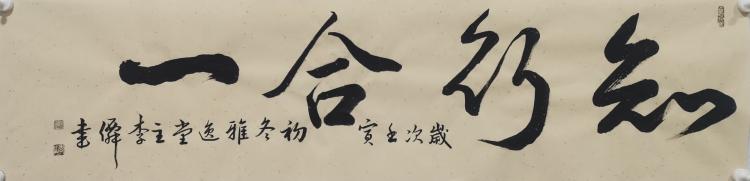 知行合一
歲次壬寅初冬雅逸堂主李儒書